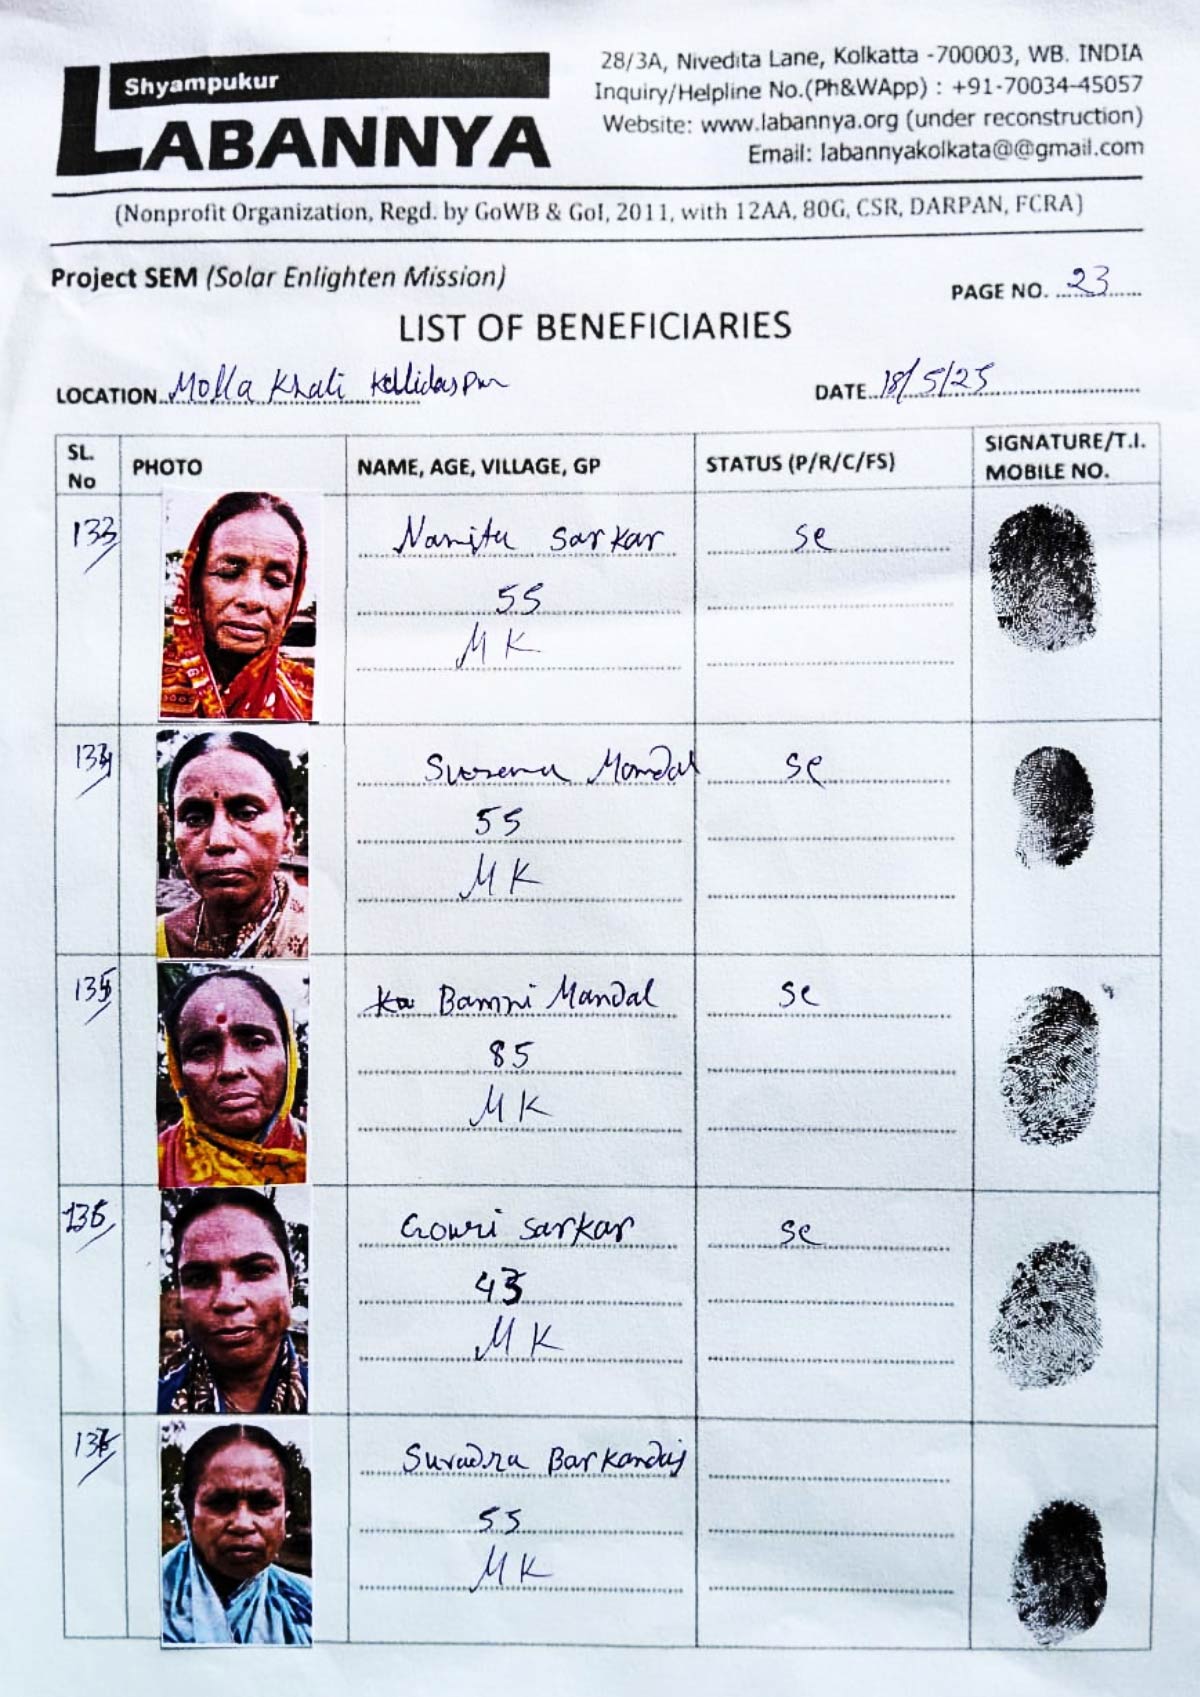 Shyampukur
LABANNYA
28/3A, Nivedita Lane, Kolkatta -700003, WB. INDIA
Inquiry/Helpline No.(Ph&WApp) : +91-70034-45057
Website: www.labannya.org (under reconstruction)
Email: labannyakolkata@@gmail.com
(Nonprofit Organization, Regd. by GoWB & GoI, 2011, with 12AA, 80G, CSR, DARPAN, FCRA)
Project SEM (Solar Enlighten Mission)
PAGE NO. 23
LIST OF BENEFICIARIES
LOCATION Molla Khali
DATE 18/5/25
SL. No PHOTO NAME, AGE, VILLAGE, GP STATUS (P/R/C/FS) SIGNATURE/T.I. MOBILE NO.
133 Namita Sarkar sc
55
MK
134 Mondal sc
55
MK
135 Bamni Mandal sc
85
MK
Gouri Sarkar sc
43
MK
Suvadra
55
MK